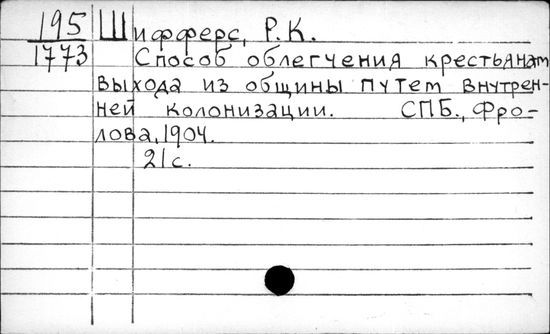 195 Шифферс, Р.К.
1773 Способ облегчения крестьянам
выхода из общины путем внутрен-
ней колонизации. СПБ., Фро-
лова, 1904.
21с.